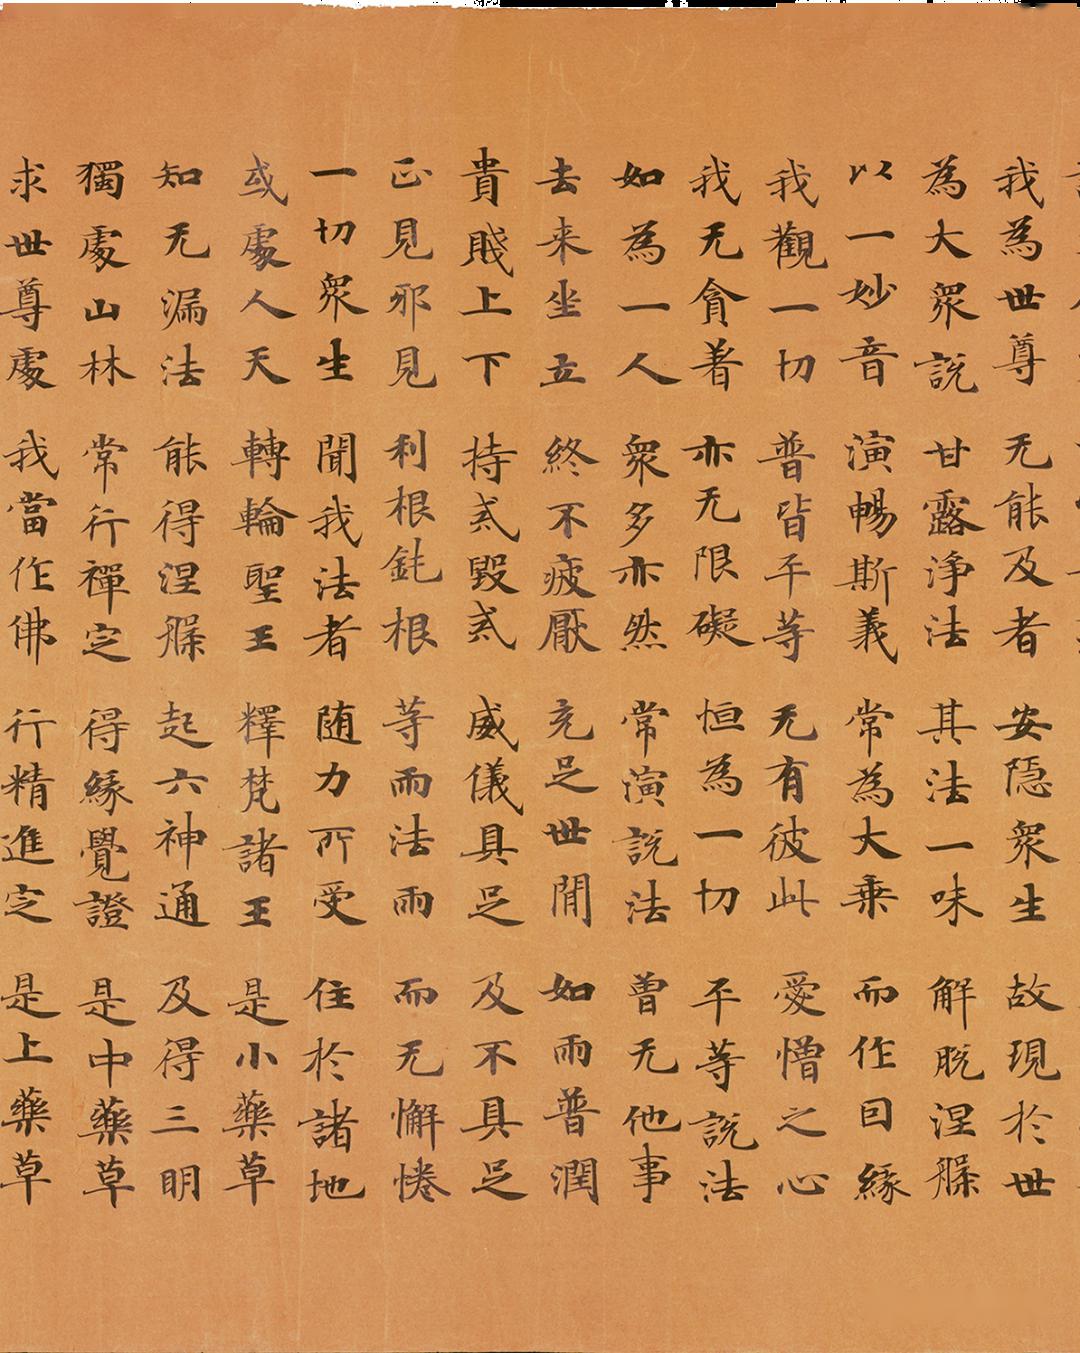 我為世尊 无能及者 安隠衆生 故現於世
為大衆說 甘露淨法 其法一味 解脫涅槃
以一妙音 演暢斯義 常為大乗 而作因緣
我觀一切 普皆平等 无有彼此 愛憎之心
我无貪著 亦无限礙 恒為一切 平等說法
如為一人 衆多亦然 常演說法 曽无他事
去来坐立 終不疲厭 充足世間 如雨普潤
貴賎上下 持戒毀戒 威儀具足 及不具足
正見邪見 利根鈍根 等雨法雨 而无懈惓
一切衆生 聞我法者 随力所受 住於諸地
或處人天 轉輪聖王 釋梵諸王 是小藥草
知无漏法 能得涅槃 起六神通 及得三明
獨處山林 常行禪定 得緣覺證 是中藥草
求世尊處 我當作佛 行精進定 是上藥草